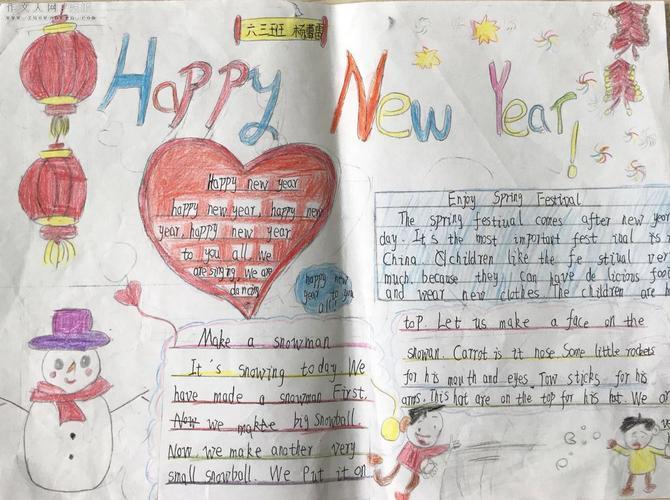 作文人网
六三班 杨
Happy New Year!
Happy new year
happy new year, happy new
year, happy new year
to you all. We
are singing. We are
dancing
happy new
year to you
all!
Enjoy Spring Festival
The spring festiual comes after new year
day. It's the most important fest iual is in
China Children like the fe stiual ver
much. because they can have de licious foo
and wear new clothes. The children are h
Make a snowman
It's snowing today We
have made a snowman First,
Now we make big snowball.
Now, we make another very
small snowball. We Put it on
top Let us make a face on the
snowan. Carrot is it nose Some little rockets
for his mouth and eyes. Tow sticks for his
arms. This hat are on the top for his hat. We ar